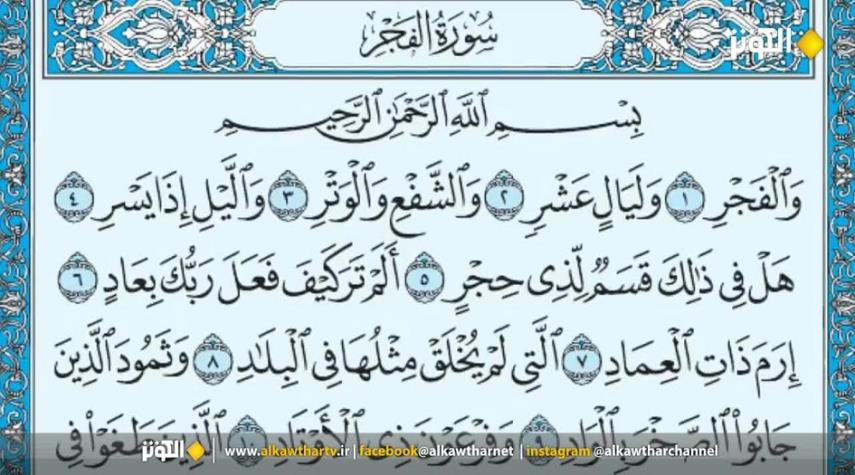 سُورَةُ الفَجْرِ
الكوثر
بِسْمِ ٱللَّهِ ٱلرَّحْمَٰنِ ٱلرَّحِيمِ
وَٱلْفَجْرِ ١ وَلَيَالٍ عَشْرٍ ٢ وَٱلشَّفْعِ وَٱلْوَتْرِ ٣ وَٱلَّيْلِ إِذَا يَسْرِ ٤
هَلْ فِى ذَٰلِكَ قَسَمٌ لِّذِى حِجْرٍ ٥ أَلَمْ تَرَ كَيْفَ فَعَلَ رَبُّكَ بِعَادٍ ٦
إِرَمَ ذَاتِ ٱلْعِمَادِ ٧ ٱلَّتِى لَمْ يُخْلَقْ مِثْلُهَا فِى ٱلْبِلَٰدِ ٨ وَثَمُودَ ٱلَّذِينَ
جَابُوا۟ ٱلصَّخْرَ بِٱلْوَادِ ٩ وَفِرْعَوْنَ ذِى ٱلْأَوْتَادِ ١٠ ٱلَّذِينَ طَغَوْا۟ فِى
الكوثر www.alkawthartv.ir | facebook@alkawtharnet | instagram @alkawtharchannel